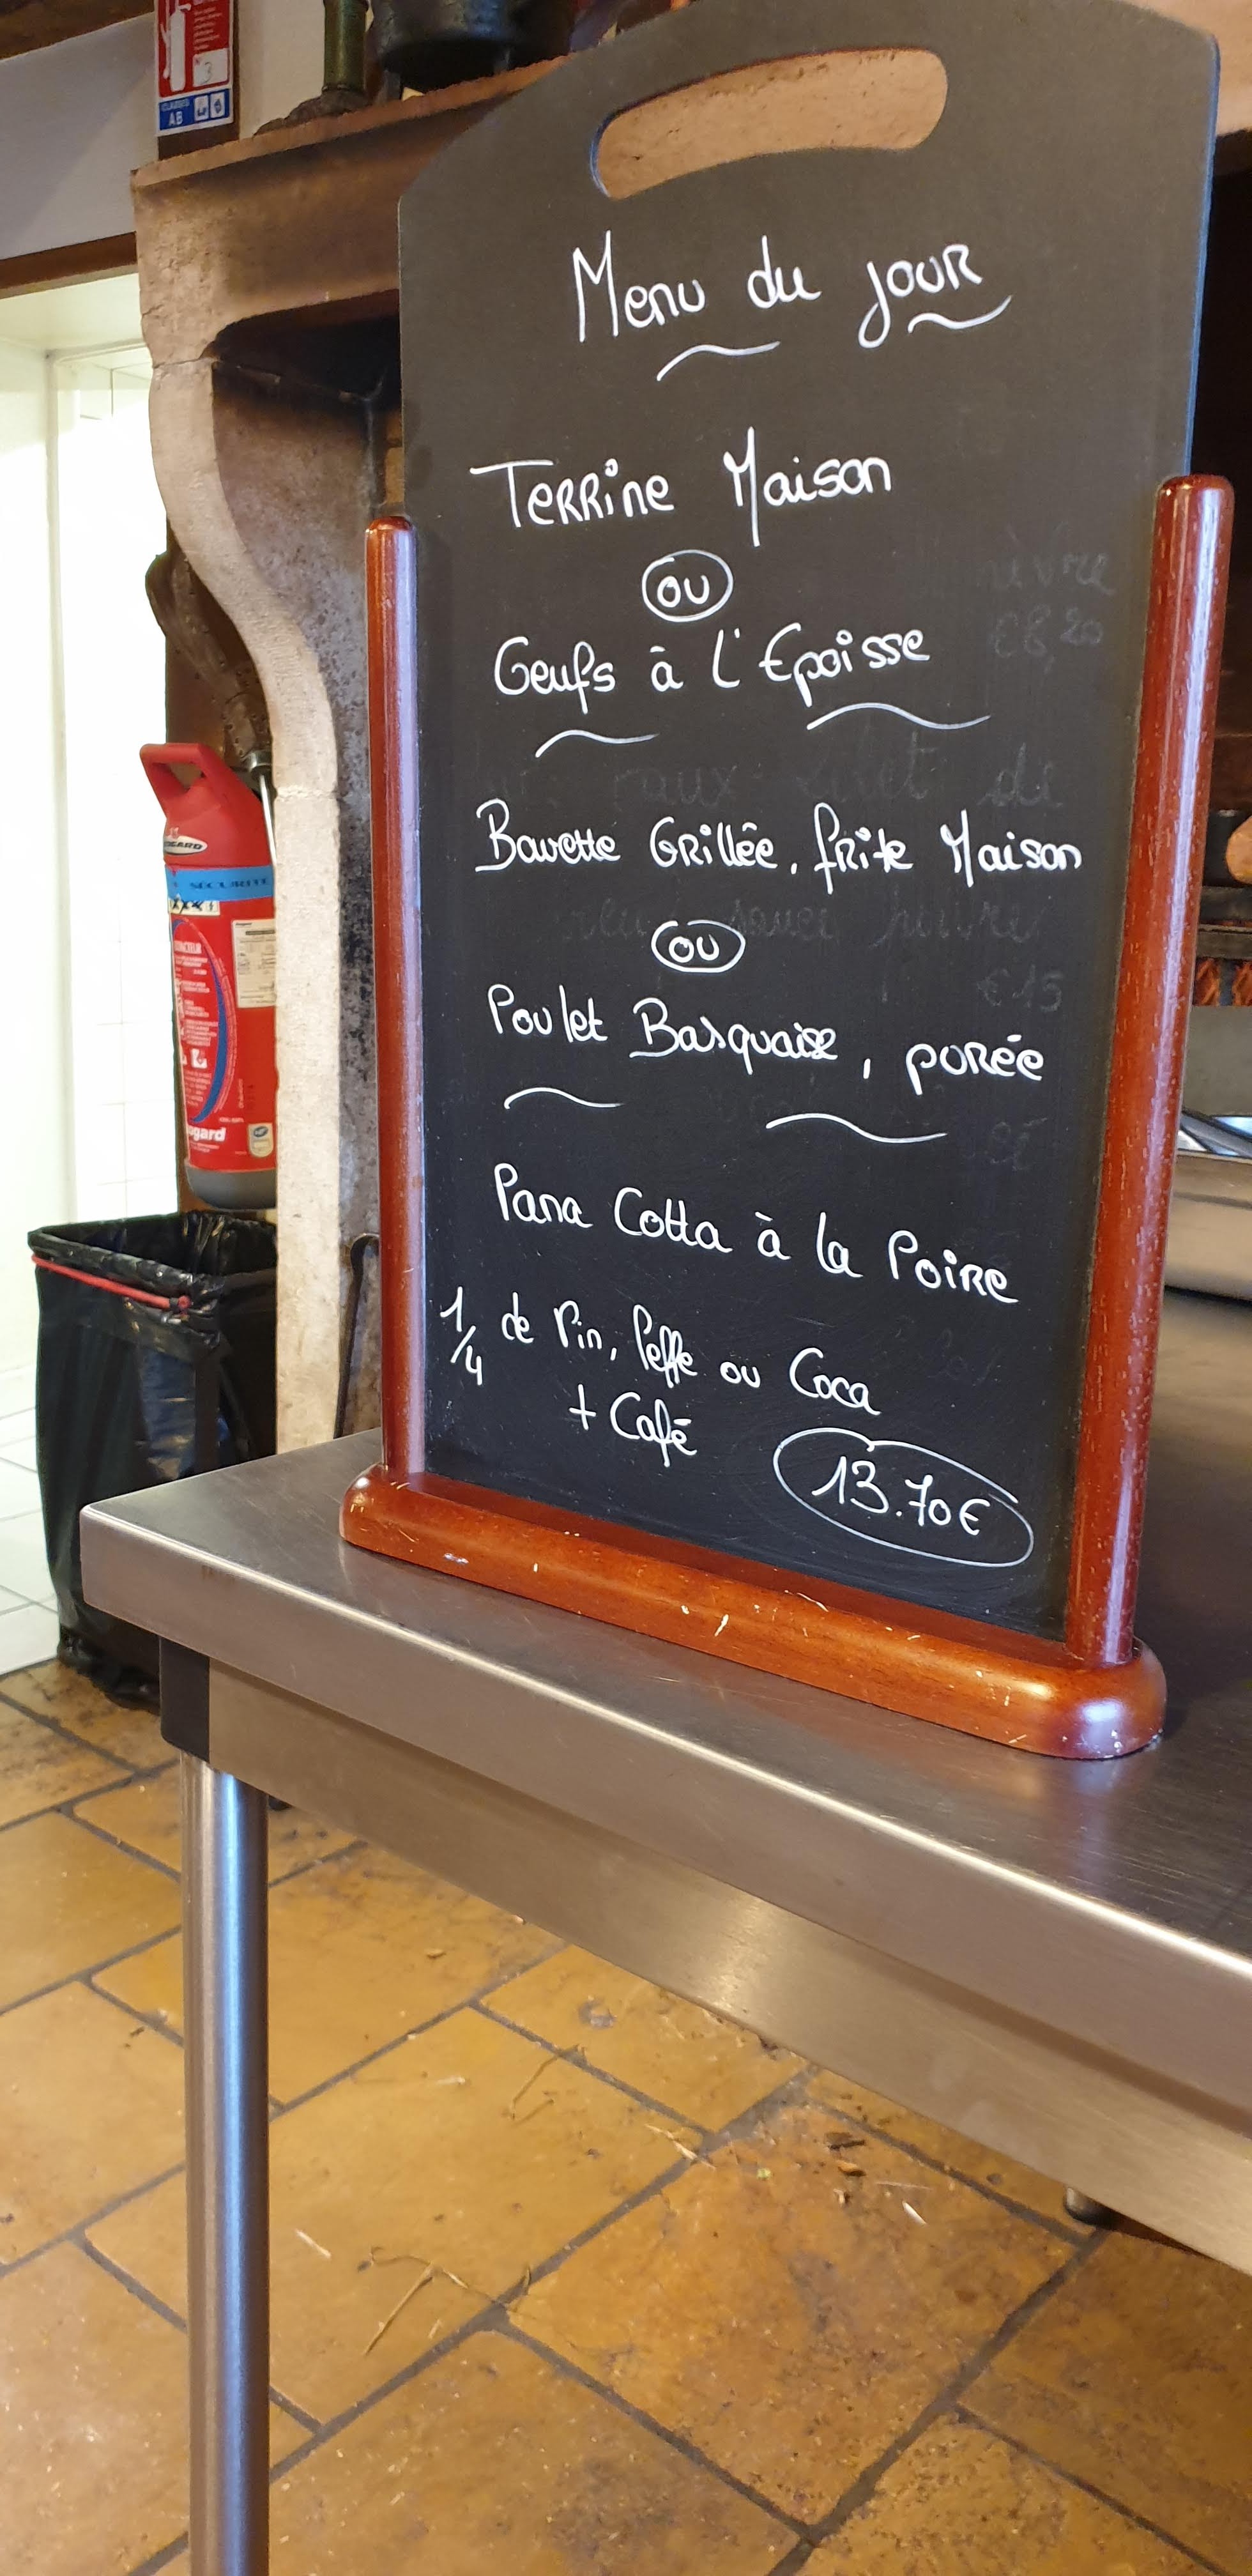 CLASSES
AB
Menu du jour
Terrine Maison
ou
Oeufs à l'Epoisse
Bavette Grillée, frite Maison
ou
Poulet Basquaise, purée
Pana Cotta à la Poire
1/4 de Vin, Peffe ou Coca
+ Café
13.70€